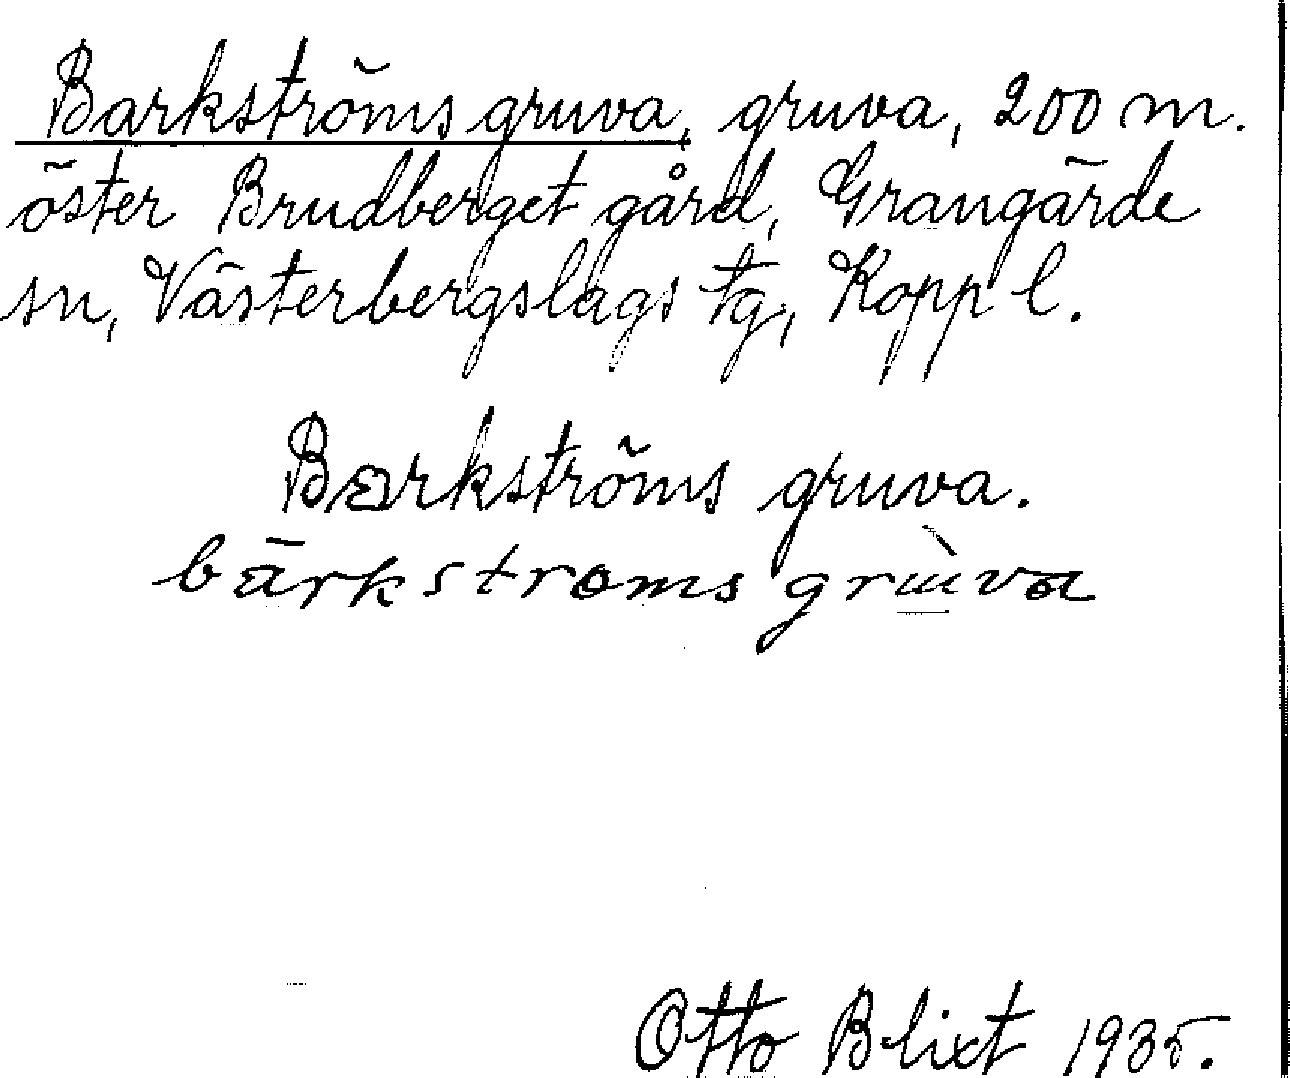 Barkströms gruva, gruva, 200 m.
öster Brudberget gård, Grangärde
sn, Västerbergslags tg, Kopp l.
Barkströms gruva.
bärkstroms grùva
Otto Blixt 1935.